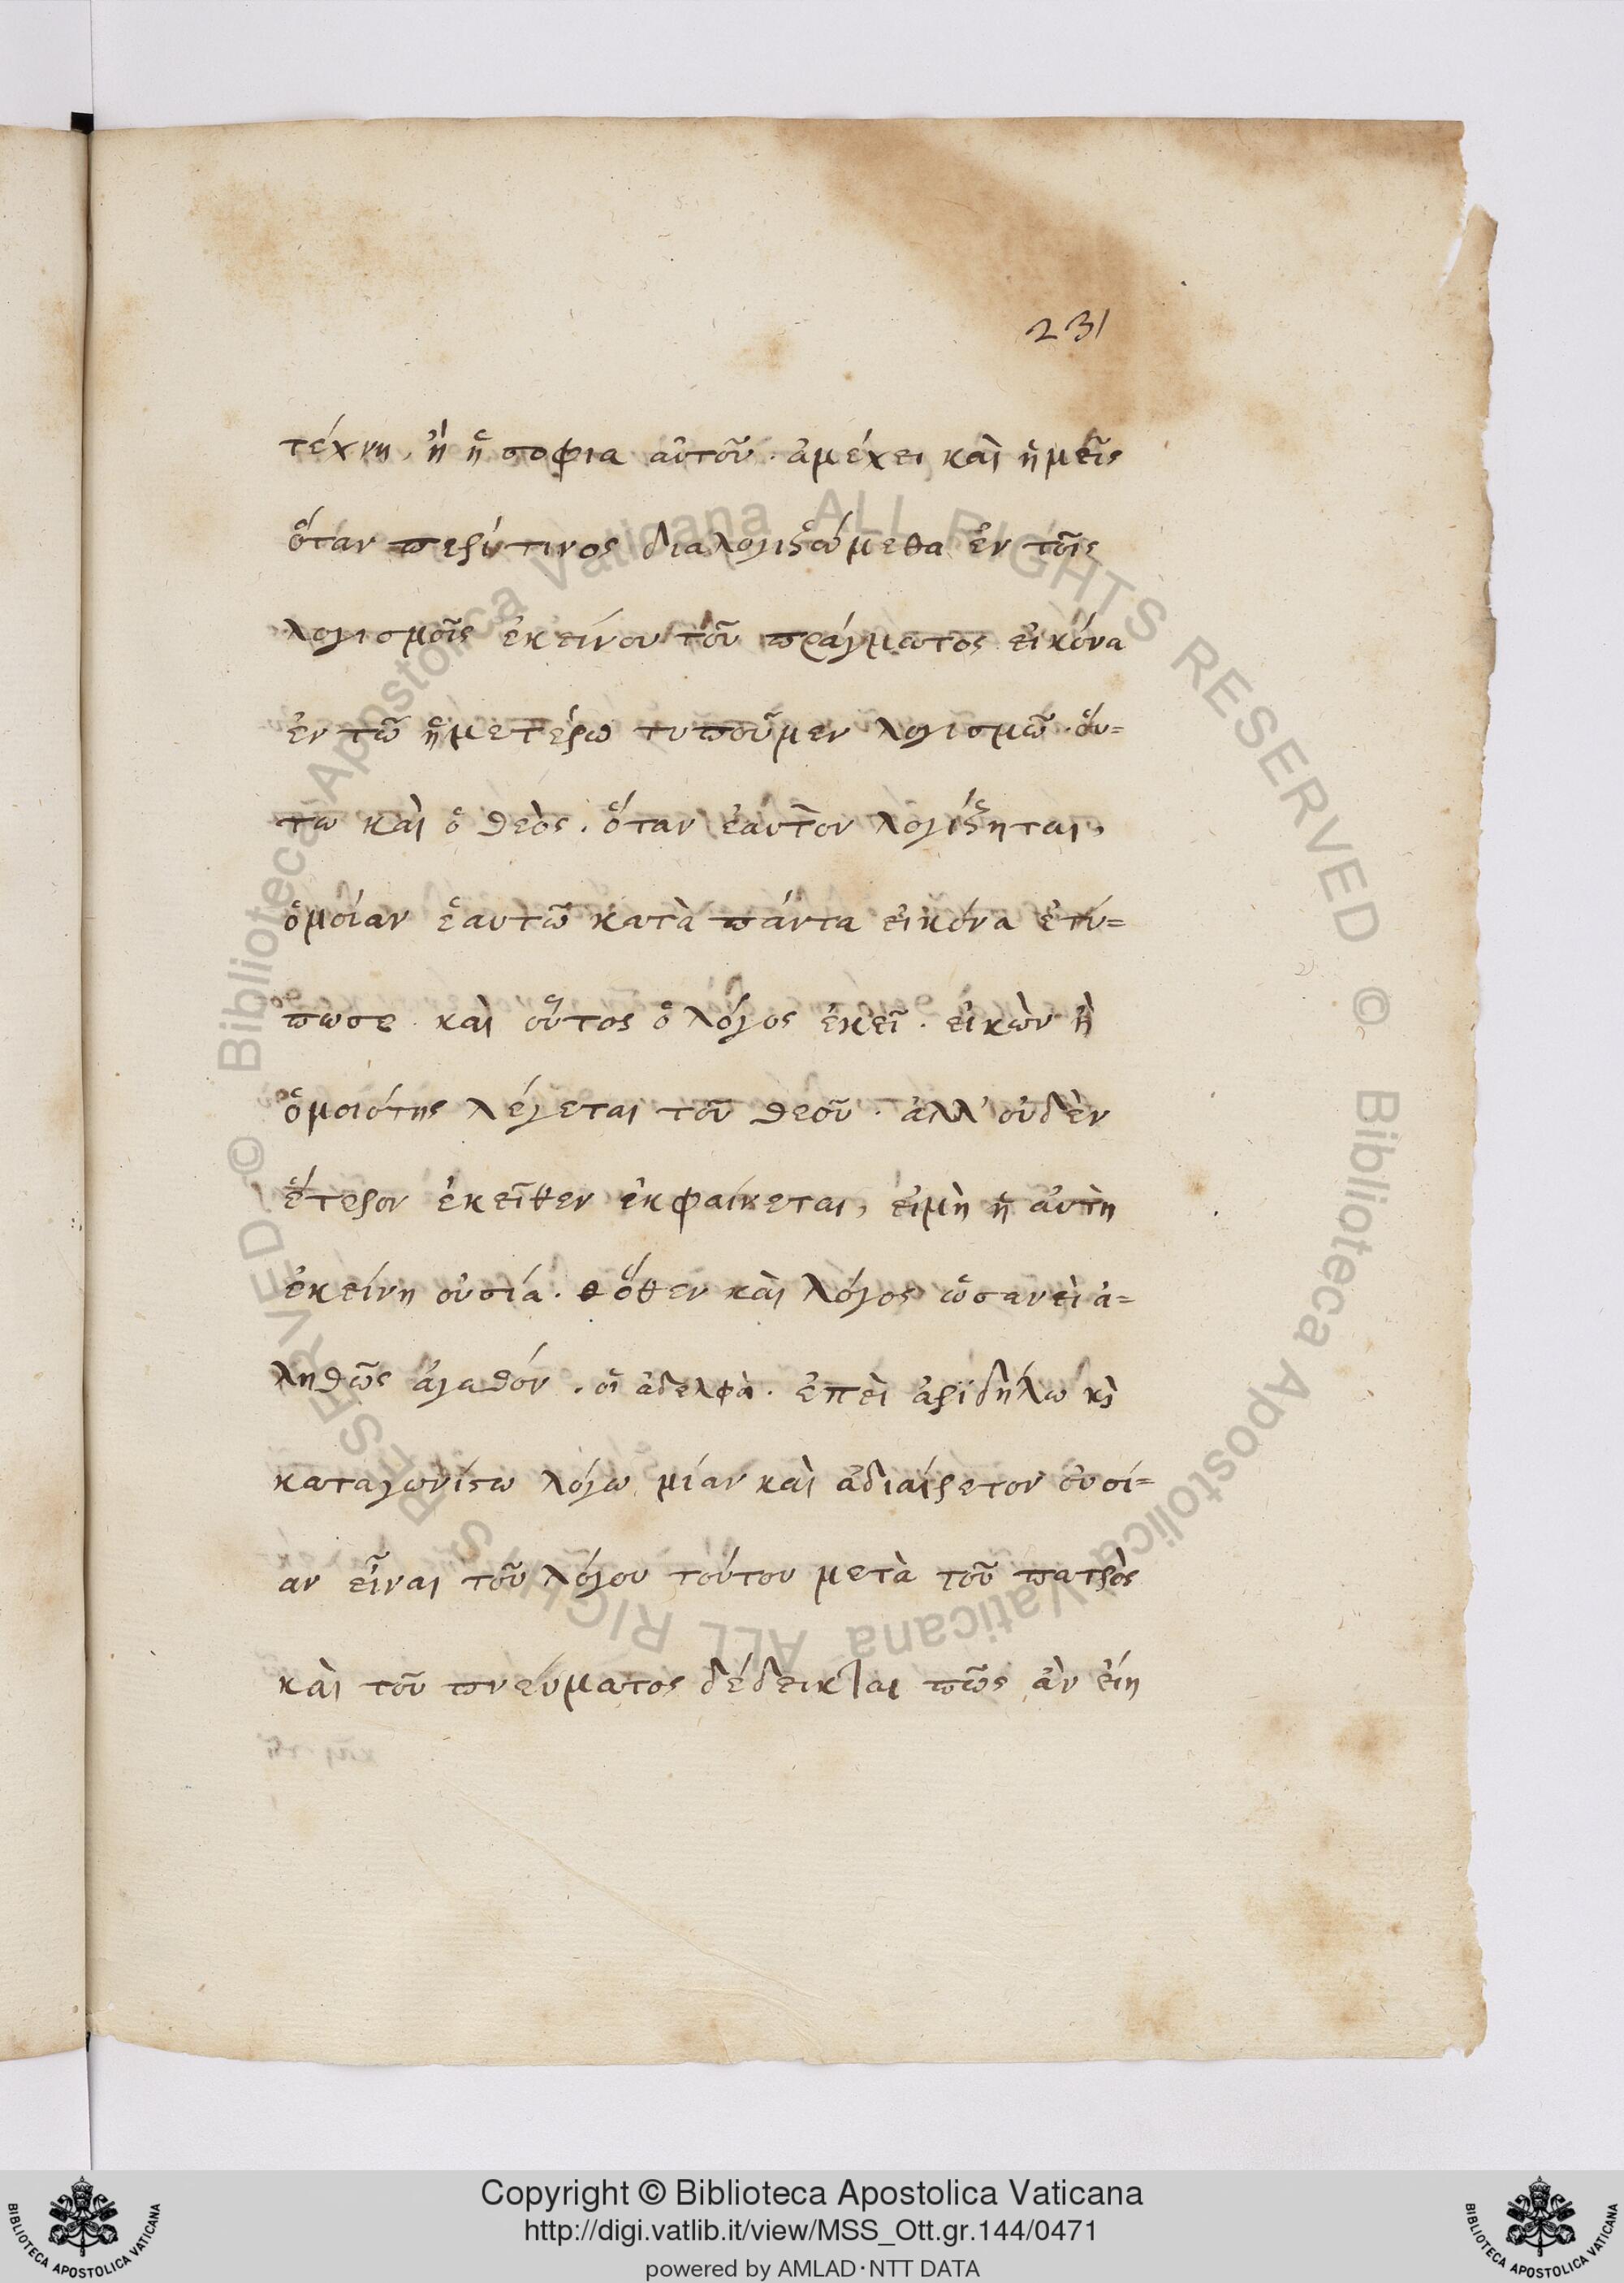 231
τέχνη, ἢ ἡ σοφια αὐτοῦ. ἀμέχει καὶ ἡμεῖς
ὅταν περίτινος διαλογιζώμεθα ἐν τοῖς
λογισμοῖς ἐκείνου τοῦ πράγματος εἰκόνα
ἐν τῶ ἡμετέρω τυποῦμεν λογισμῶ. ὅυ=
τω καὶ ὁ θεὸς. ὅταν ἑαυτὸν λογίζηται,
ὁμοίαν ἑαυτῶ κατὰ πάντα εἰκόνα ἐτύ=
πωσε. καὶ οὗτος ὁ λόγος ἐκεῖ. εἰκὼν ἢ
ὁμοιότης λέγεται τοῦ θεοῦ. ἀλλ' οὐδὲν
ἕτερον ἐκεῖθεν ἐκφαίνεται, εἰμὴ ἡ αὐτὴ
ἐκείνη οὐσία. ὅθεν καὶ λόγος ὡσανεὶ ἀ=
ληθῶς ἀγαθόν. οἷ ἀδελφὰ. ἐπεὶ ἀριδήλω κὶ
καταγωνίστω λόγω μίαν καὶ ἀδιαίρετον οὐσί=
αν εἶναι τοῦ λόγου τούτου μετὰ τοῦ πατρὸς
καὶ τοῦ πνεύματος δέδεικται πῶς ἀν εἴη
Copyright © Biblioteca Apostolica Vaticana
http://digi.vatlib.it/view/MSS_Ott.gr.144/0471
powered by AMLAD·NTT DATA
BIBLIOTECA APOSTOLICA VATICANA
BIBLIOTECA APOSTOLICA VATICANA
© Biblioteca Apostolica Vaticana ALL RIGHTS RESERVED © Biblioteca Apostolica Vaticana ALL RIGHTS RESERVED